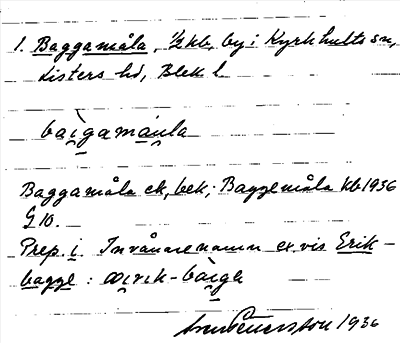 1. Baggamåla, 1/2 kb, by i Kyrkhults sn,
Listers hd, Blek l
bai̯gamau̯la
Baggamåla ek, bek; Baggemåla kb 1936
G 10.
Prep. i. Invånarenamn ex.vis Erik-
bagge :
1936